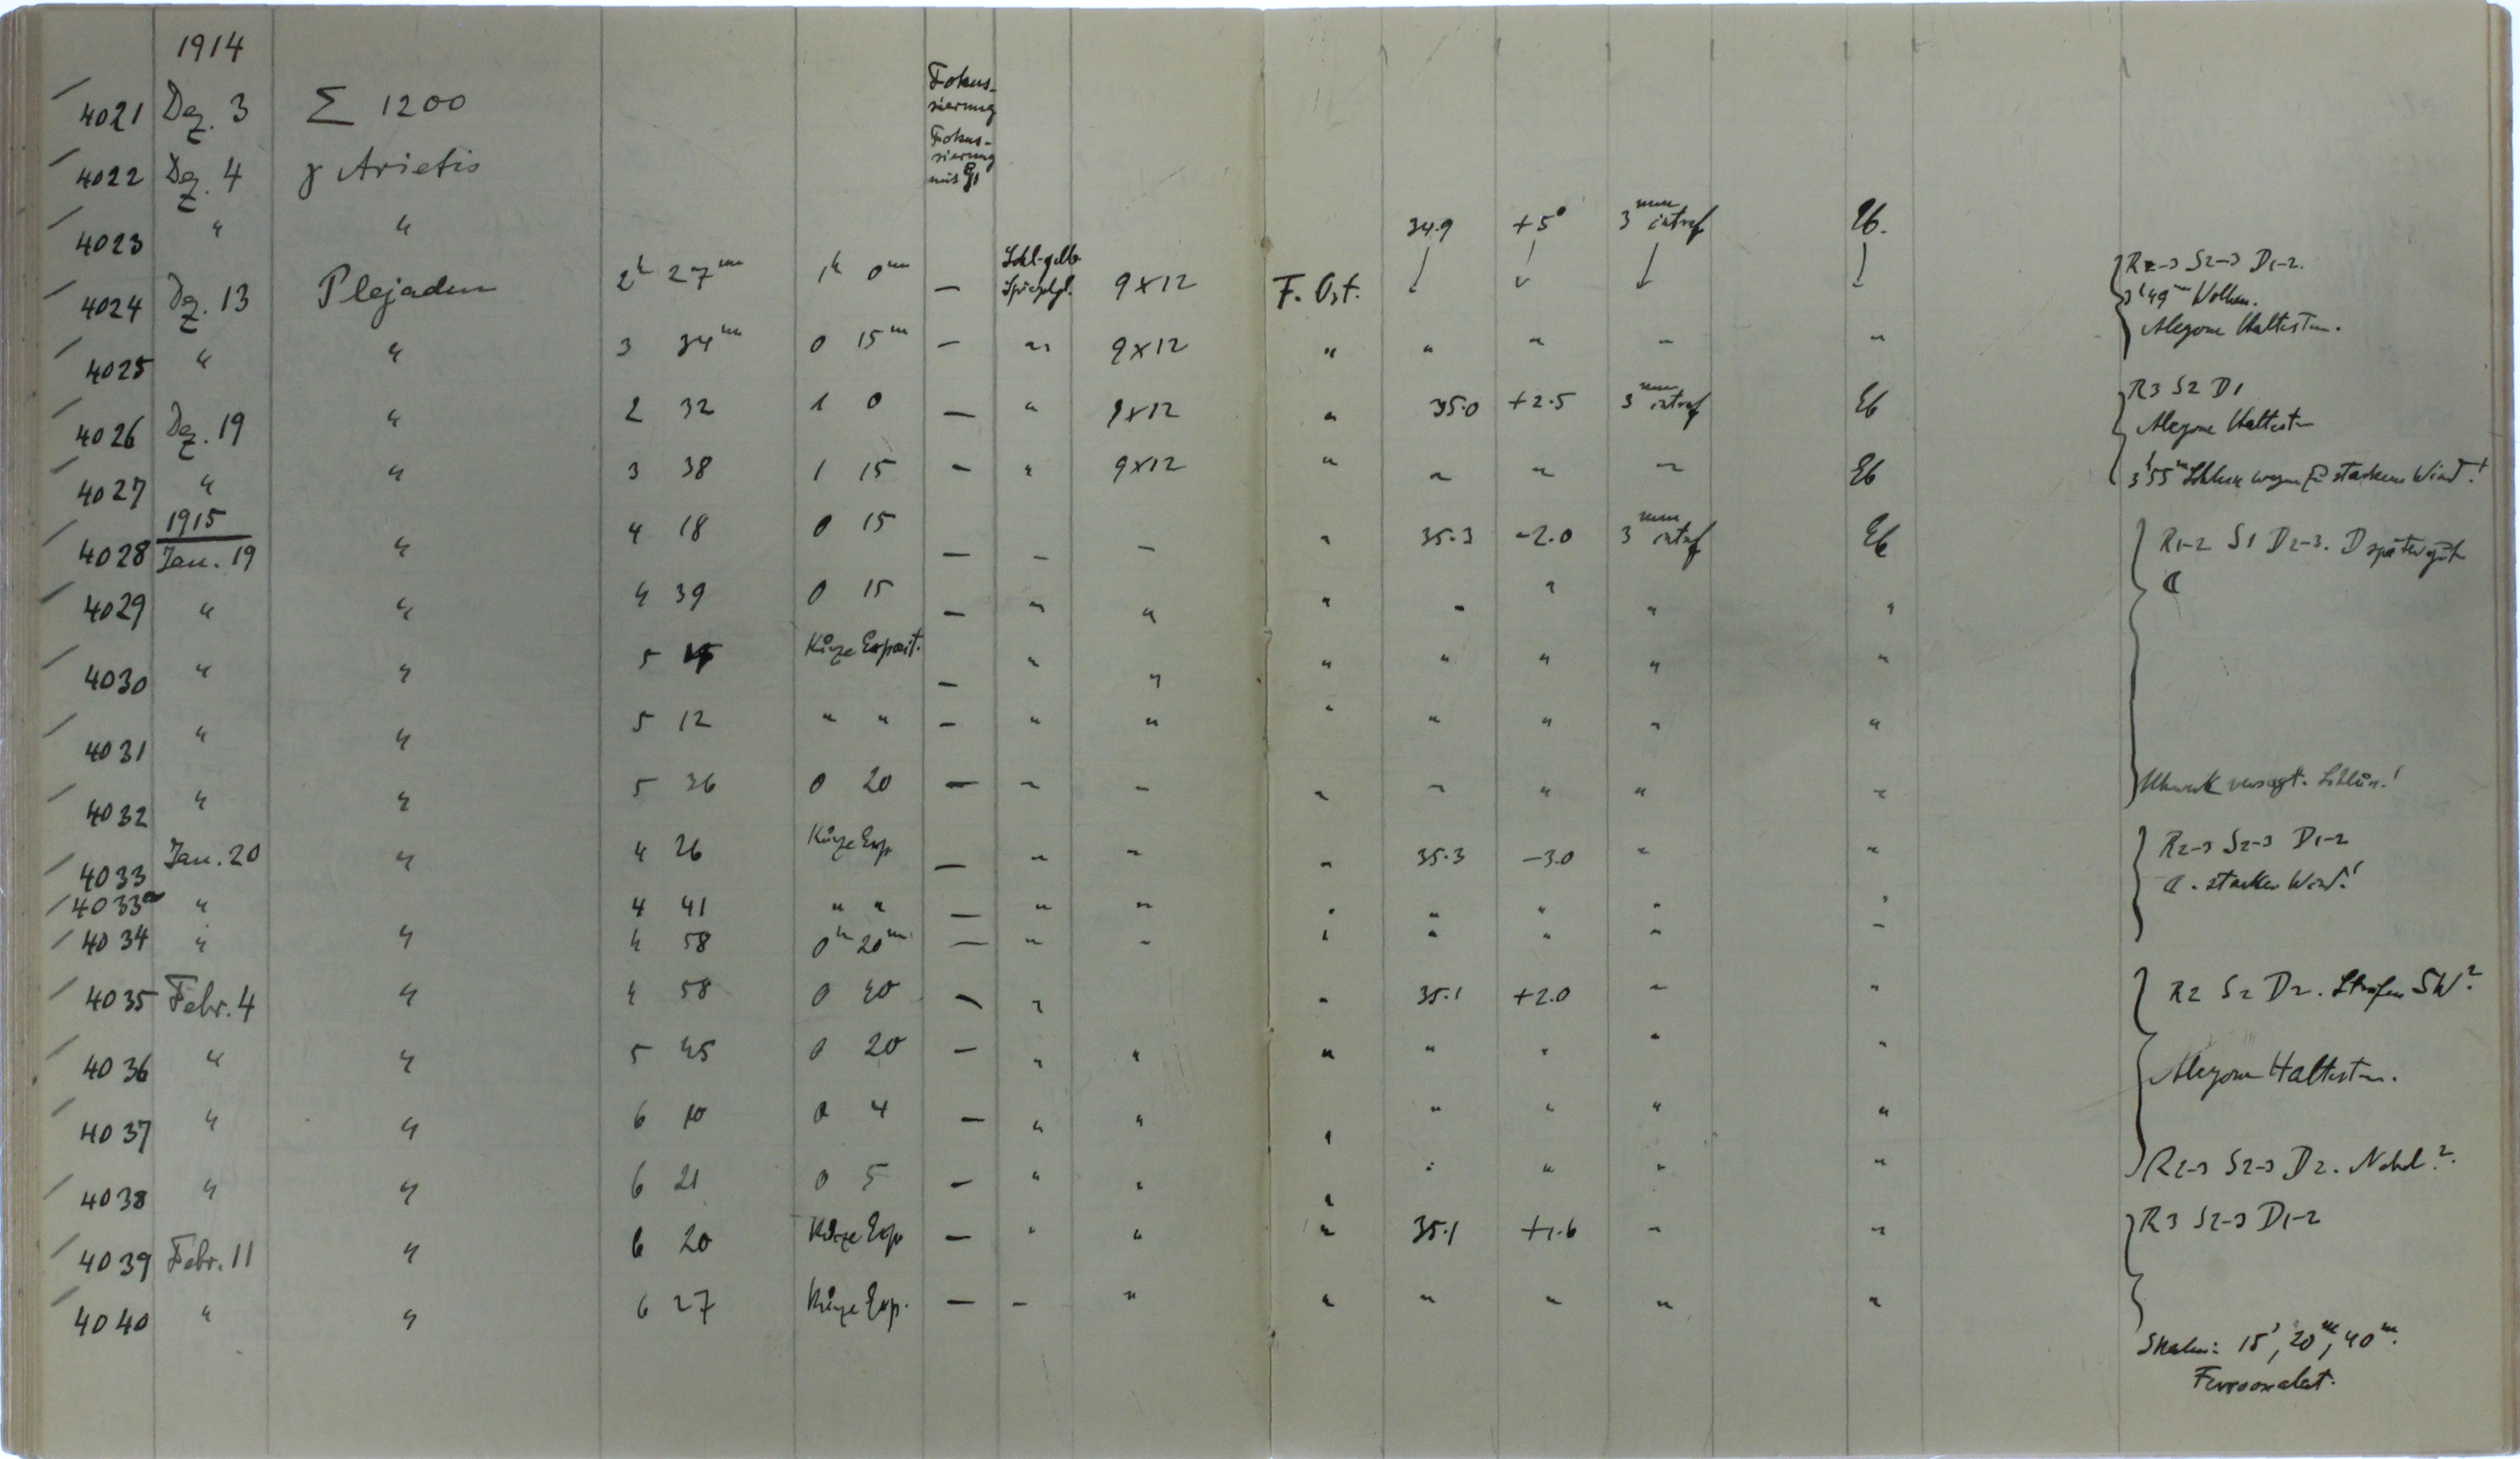 1914
4021 Dez. 3 Σ 1200 Fokus-
sierung
4022 Dez. 4 γ Arietis Fokus-
sierung
mit
4023 " " 34.9 +5° 3 mm intraf Eb.
4024 Dez. 13 Plejaden 2h 27m 1h 0m — Schl. gelb. Spiegelgl. 9x12 F. Ost. ↓ ↓ ↓ ↓ R2-3 S2-3 D1-2.
3h 49m Wolken.
Alcyone Haltestern.
4025 " " 3 34m 0 15m — " 9x12 " " " " "
4026 Dez. 19 " 2 32 1 0 — " 9x12 " 35.0 +2.5 3 mm intraf Eb R3 S2 D1
Alcyone Haltestern
4027 " " 3 38 1 15 — " 9x12 " " " " Eb 3h 55m Schluss wegen zu starkem Wind!
1915
4028 Jan. 19 " 4 18 0 15 — " " " 35.3 -2.0 3 mm intraf Eb R1-2 S1 D2-3. D später gut
☾
4029 " " 4 39 0 15 — " " " " " " "
4030 " " 5 Kurze Exposit. — " " " " " " "
4031 " " 5 12 " " — " " " " " " "
4032 " " 5 36 0 20 — " " " " " " " Uhrwerk versagt. Schluss!
4033 Jan. 20 " 4 26 Kurze Exp. — " " " 35.3 -3.0 " " R2-3 S2-3 D1-2
☾. starker Wind!
4033a " 4 41 " " — " " " " " " "
4034 " " 4 58 0h 20m — " " " " " " "
4035 Febr. 4 " 4 58 0 40 — " " 35.1 +2.0 " " R2 S2 D2. Streifen SW?
4036 " " 5 45 0 20 — " " " " " " " Alcyone Haltestern.
4037 " " 6 10 0 4 — " " " " " " "
4038 " " 6 21 0 5 — " " " " " " " R2-3 S2-3 D2. Nebel?.
4039 Febr. 11 " 6 20 Kurze Exp — " " " 35.1 +1.6 " " R3 S2-3 D1-2
4040 " " 6 27 Kurze Exp. — " " " " " " "
Skalen: 15s, 20m, 40m.
Ferrooxalat.